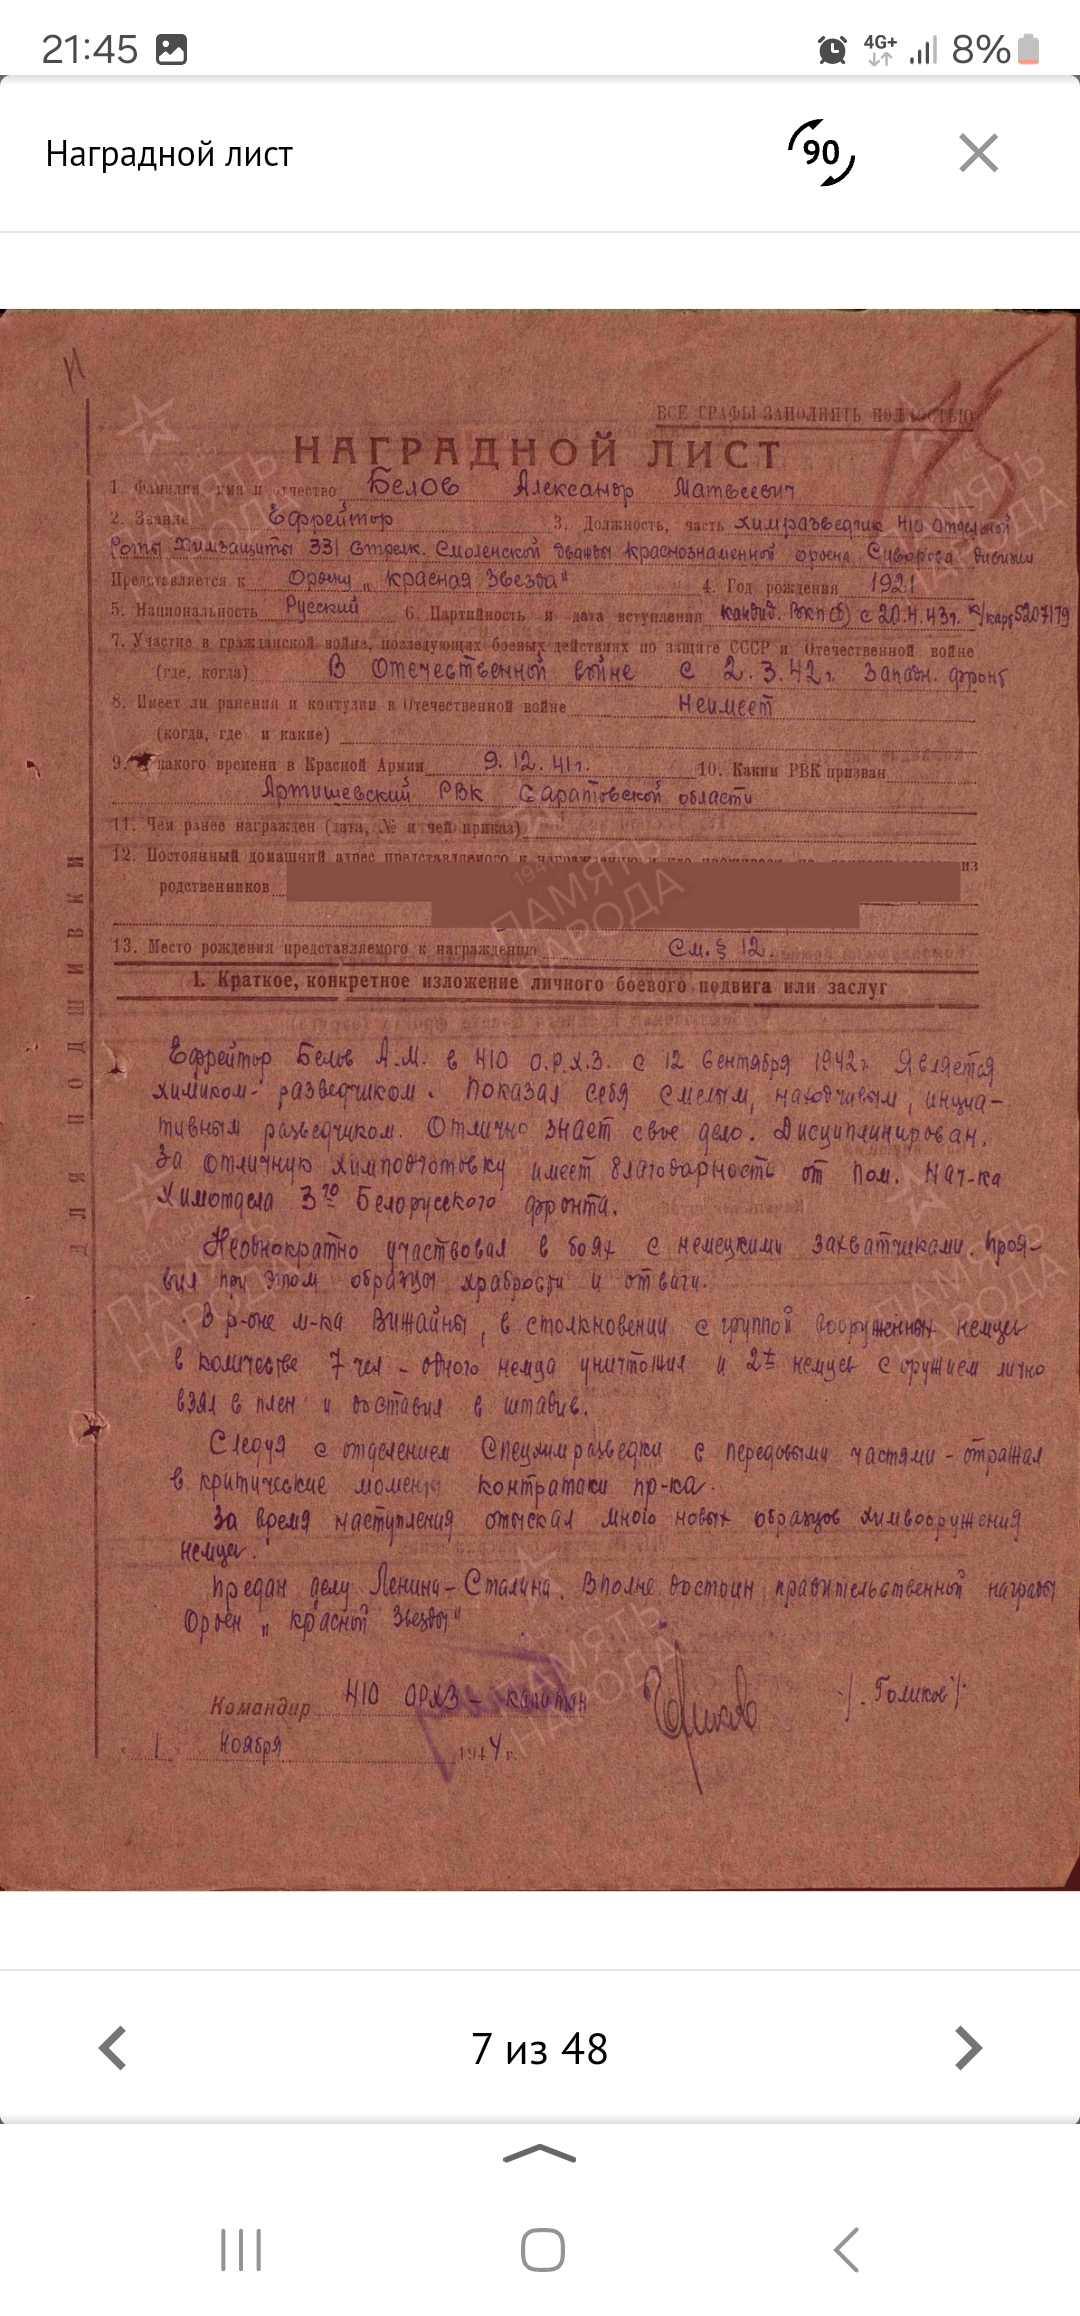 21:45 4G+ 8%
Наградной лист 90
ВСЕ ГРАФЫ ЗАПОЛНЯТЬ ПОЛНОСТЬЮ
НАГРАДНОЙ ЛИСТ
1. Фамилия имя и отчество Белов Александр Матвеевич
2. Звание Ефрейтор 3. Должность, часть химразведчик 410 отдельной
Роты Химзащиты 331 Стрелк. Смоленской дважды краснознаменной ордена Суворова дивизии
Представляется к Ордену „Красная Звезда" 4. Год рождения 1921
5. Национальность Русский 6. Партийность и дата вступления кандид. ВКП(б) с 20.4.43г. к/карт 5207179
7. Участие в гражданской войне, последующих боевых действиях по защите СССР и Отечественной войне
(где, когда) В Отечественной войне с 2.3.42г. Западн. фронт
8. Имеет ли ранения и контузии в Отечественной войне Неимеет
(когда, где и какие)
9. С какого времени в Красной Армии 9.12.41г. 10. Каким РВК призван
Артишевский РВК Саратовской области
11. Чем ранее награжден (дата, № и чей приказ)
12. Постоянный домашний адрес представляемого к награждению и из
родственников
13. Место рождения представляемого к награждению См. § 12.
1. Краткое, конкретное изложение личного боевого подвига или заслуг
ДЛЯ ПОДШИВКИ
Ефрейтор Белов А.М. в 410 О.Р.Х.З. с 12 Сентября 1942г Является
химиком-разведчиком. Показал себя смелым, находчивым, иници-
тивным разведчиком. Отлично знает свое дело. Дисциплинирован.
За отличную химподготовку имеет благодарность от Пом. Нач-ка
Химотдела 3го Белорусского фронта.
Необнократно участвовал в боях с немецкими захватчиками. Проя-
вил при этом образцы храбрости и отваги.
В р-оне м-ка Вижайны, в столкновении с группой вооруженных немцев
в количестве 7 чел - одного немца уничтожил и 2х немцев с оружием лично
взял в плен и доставил в штадив.
Следуя с отделением Спецхимразведки с передовыми частями - отражал
в критические моменты контратаки пр-ка.
За время наступления отыскал много новых образцов химвооружения
немцев.
Предан делу Ленина-Сталина. Вполне достоин правительственной награды
Орден „Красной Звезды"
Командир 410 ОРХЗ - капитан /. Голиков/.
1 Ноября 1944 г.
ПАМЯТЬ НАРОДА
7 из 48